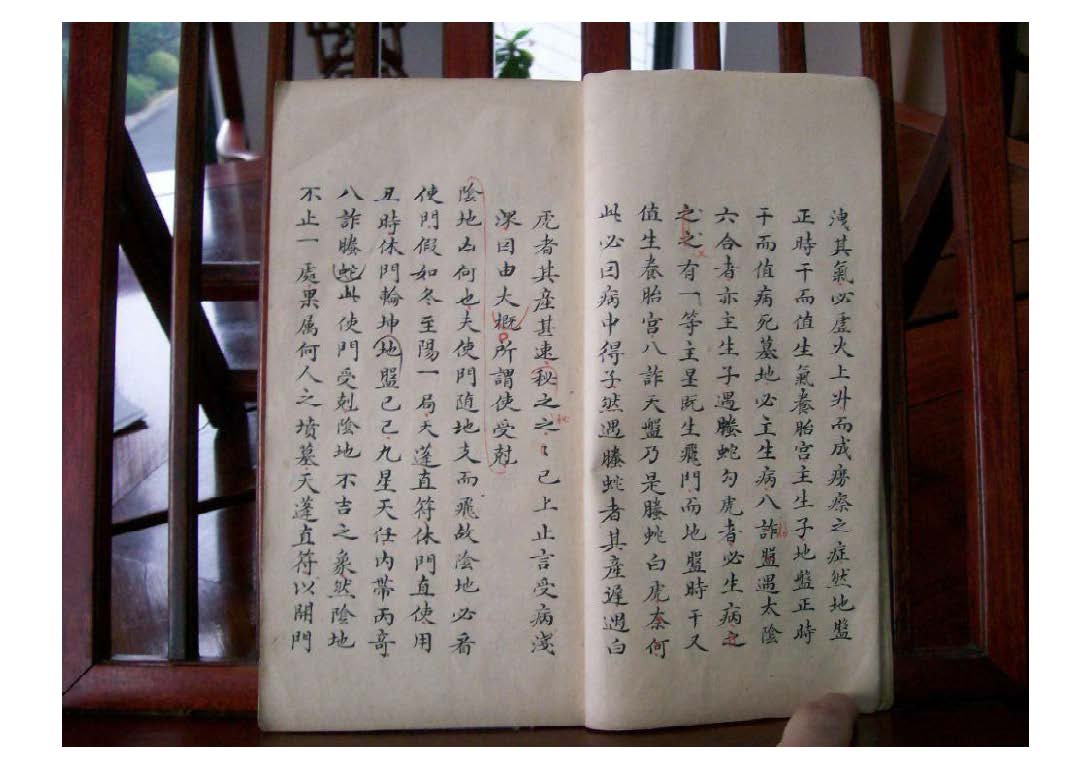 洩其氣必虛火上升而成癆瘵之症然地盤
正時干而值生氣養胎宮主生子地盤正時
干而值病死墓地必主生病八詐盤遇太陰
六合者亦主生子遇螣蛇勾虎者必生病之
之之有一等主星既生飛門而地盤時干又
值生養胎宮八詐天盤乃是螣蛇白虎奈何
此必因病中得子然遇螣蛇者其產遲遇白
虎者其產甚速秘之之〻已上止言受病淺
深因由大概所謂使受尅
陰地凶何也夫使門随地支而飛故陰地必看
使門假如冬至陽一局天蓬直符休門直使用
丑時休門輪坤地盤己己九星天任内帶丙奇
八詐螣蛇此使門受剋陰地不吉之象然陰地
不止一處果属何人之墳墓天蓬直符以開門